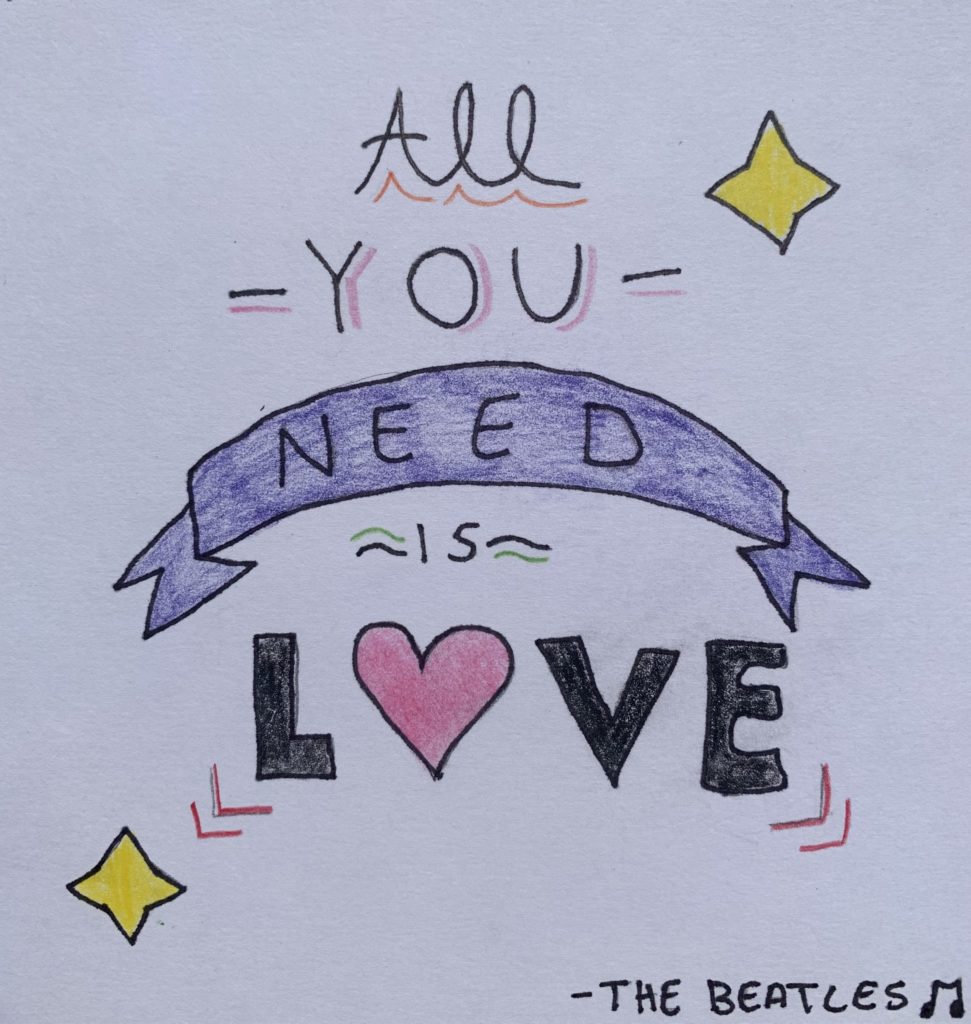 All
YOU
NEED
IS
L♥VE
-THE BEATLES♫